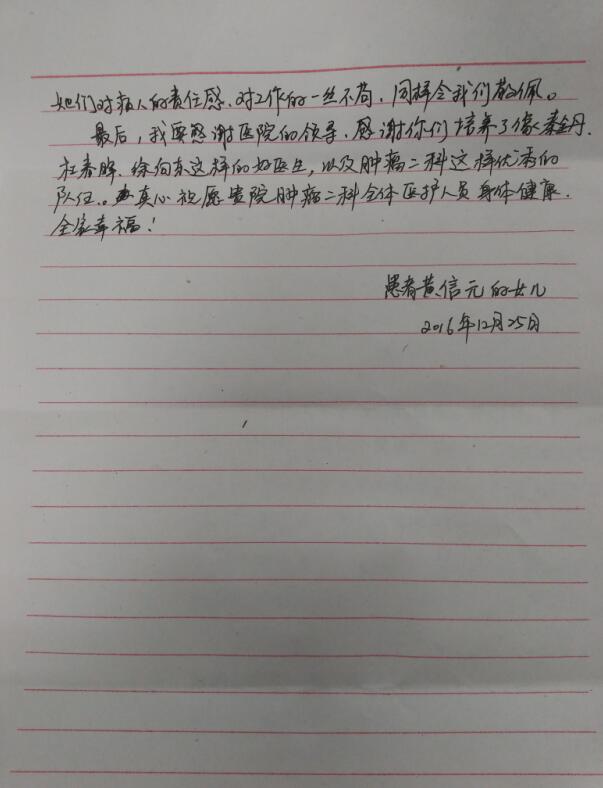 她们对病人的责任感、对工作的一丝不苟,同样令我们敬佩。
最后,我要感谢医院的领导、感谢你们培养了像秦丹、
杜春晖、徐向东这样的好医生,以及肿瘤二科这样优秀的
队伍。真心祝愿贵院肿瘤二科全体医护人员身体健康、
全家幸福!
患者黄信元的女儿
2016年12月25日